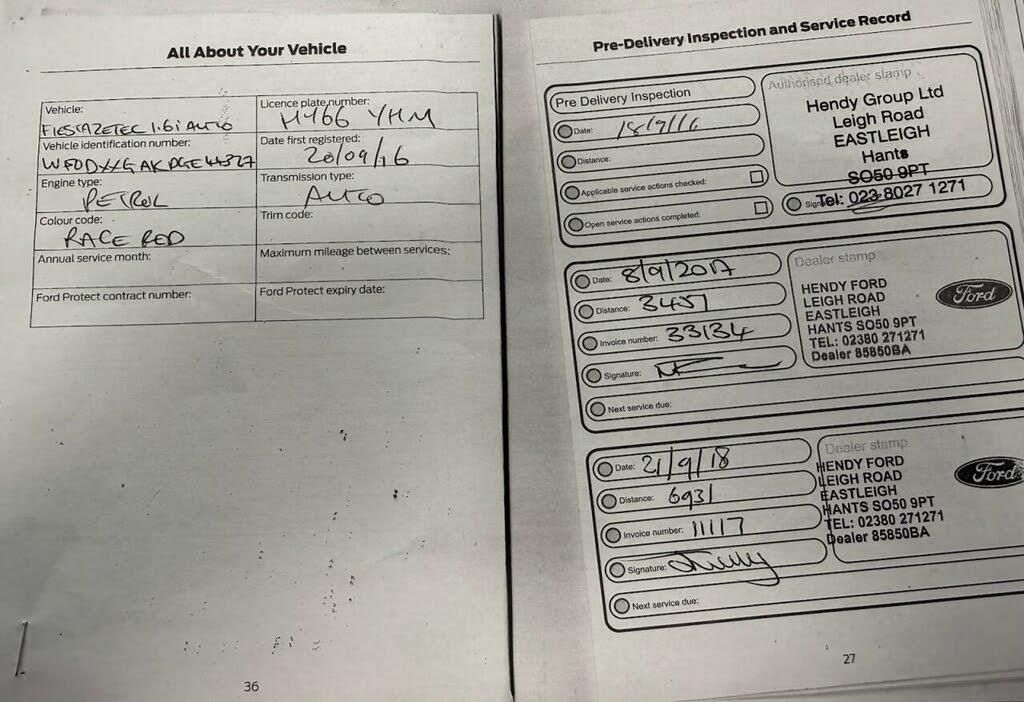 All About Your Vehicle
Vehicle:
FIESTA ZETEC 1.6i AUTO
Licence plate number:
YHM
Vehicle identification number:
Date first registered:
20/09/16
Engine type:
PETROL
Transmission type:
AUTO
Colour code:
RACE RED
Trim code:
Annual service month:
Maximum mileage between services:
Ford Protect contract number:
Ford Protect expiry date:
36
Pre-Delivery Inspection and Service Record
Pre Delivery Inspection
Date: 18/9/16
Distance:
Applicable service actions checked:
Open service actions completed:
Authorised dealer stamp
Hendy Group Ltd
Leigh Road
EASTLEIGH
Hants
SO50 9PT
Tel: 023 8027 1271
Date: 8/9/2017
Distance: 3457
Invoice number: 33134
Signature:
Next service due:
Dealer stamp
HENDY FORD
LEIGH ROAD
EASTLEIGH
HANTS SO50 9PT
TEL: 02380 271271
Dealer 85850BA
Ford
Date: 21/9/18
Distance: 6931
Invoice number: 11117
Signature:
Next service due:
Dealer stamp
HENDY FORD
LEIGH ROAD
EASTLEIGH
HANTS SO50 9PT
TEL: 02380 271271
Dealer 85850BA
Ford
27